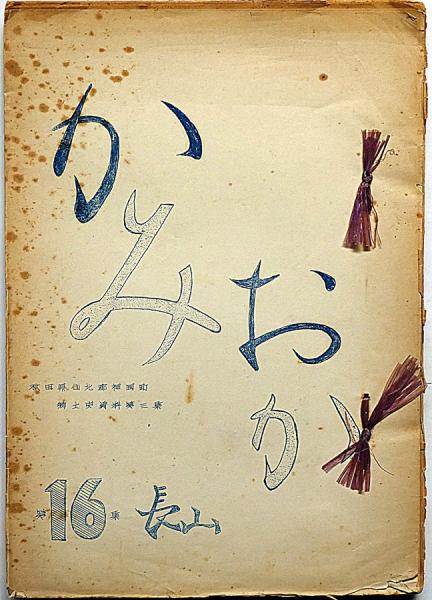 かみ
おか
秋田縣仙北郡神岡町
郷土史資料第三集
第16集 長山